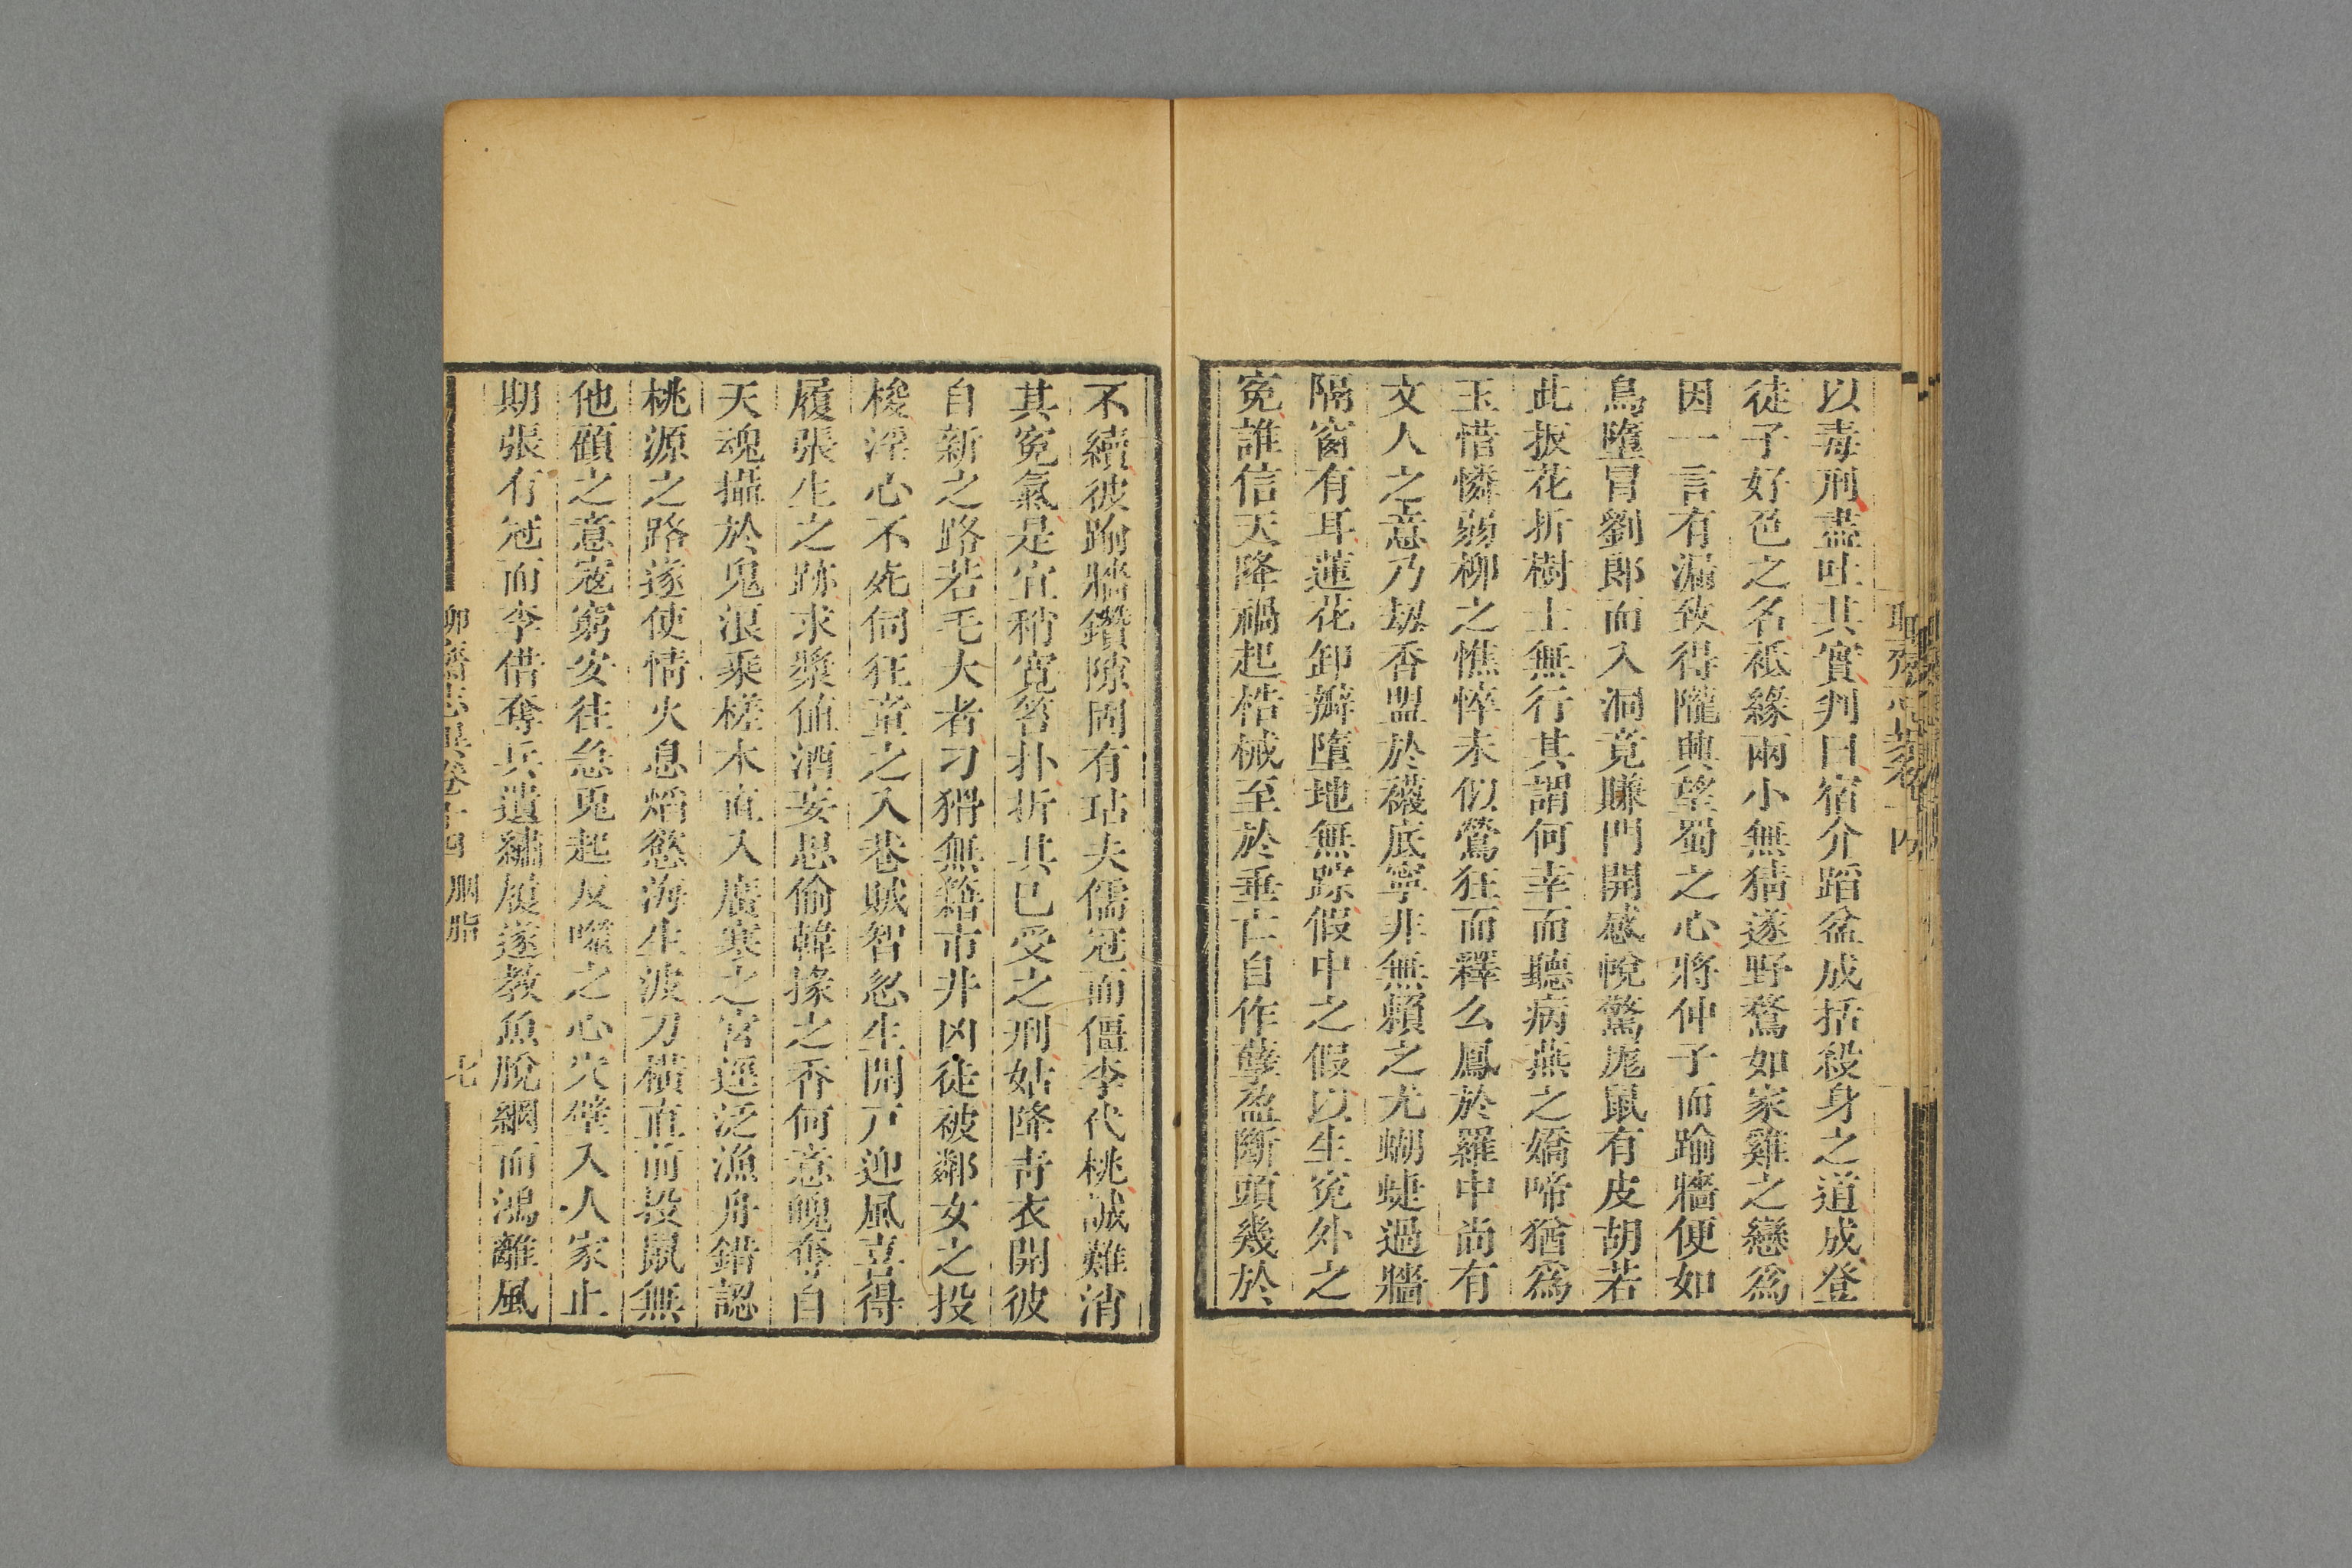 以毒刑盡吐其實判曰宿介蹈盆成括殺身之道成登
徒子好色之名祗緣兩小無猜遂野鶩如家雞之戀爲
因一言有漏致得隴興望蜀之心將仲子而踰牆便如
鳥墮冒劉郎而入洞竟賺門開感帨驚尨鼠有皮胡若
此扳花折樹士無行其謂何幸而聽病燕之嬌啼猶爲
玉惜憐弱柳之憔悴未似鶯狂而釋么鳳於羅中尚有
文人之意乃刼香盟於襪底寧非無賴之尤蝴蜨過牆
隔窗有耳蓮花卸瓣墮地無踪假中之假以生寃外之
寃誰信天降禍起梏械至於垂亡自作孽盈斷頭幾於
不續彼踰牆鑽隙固有玷夫儒冠而僵李代桃誠難消
其寃氣是宜稍寬笞扑折其已受之刑姑降青衣開彼
自新之路若毛大者刁猾無籍市井凶徒被鄰女之投
梭淫心不死伺狂童之入巷賊智忽生開戸迎風喜得
履張生之跡求漿値酒妄思偷韓掾之香何意魄奪自
天魂攝於鬼浪乘槎木直入廣寒之宮逕泛漁舟錯認
桃源之路遂使情火息焰慾海生波刀橫直前投鼠無
他顧之意寇窮安往急兎起反噬之心穴壁入人家止
期張有冠而李借奪兵遺繡履遂教魚脫網而鴻離風
聊齋志異卷十四 胭脂 七